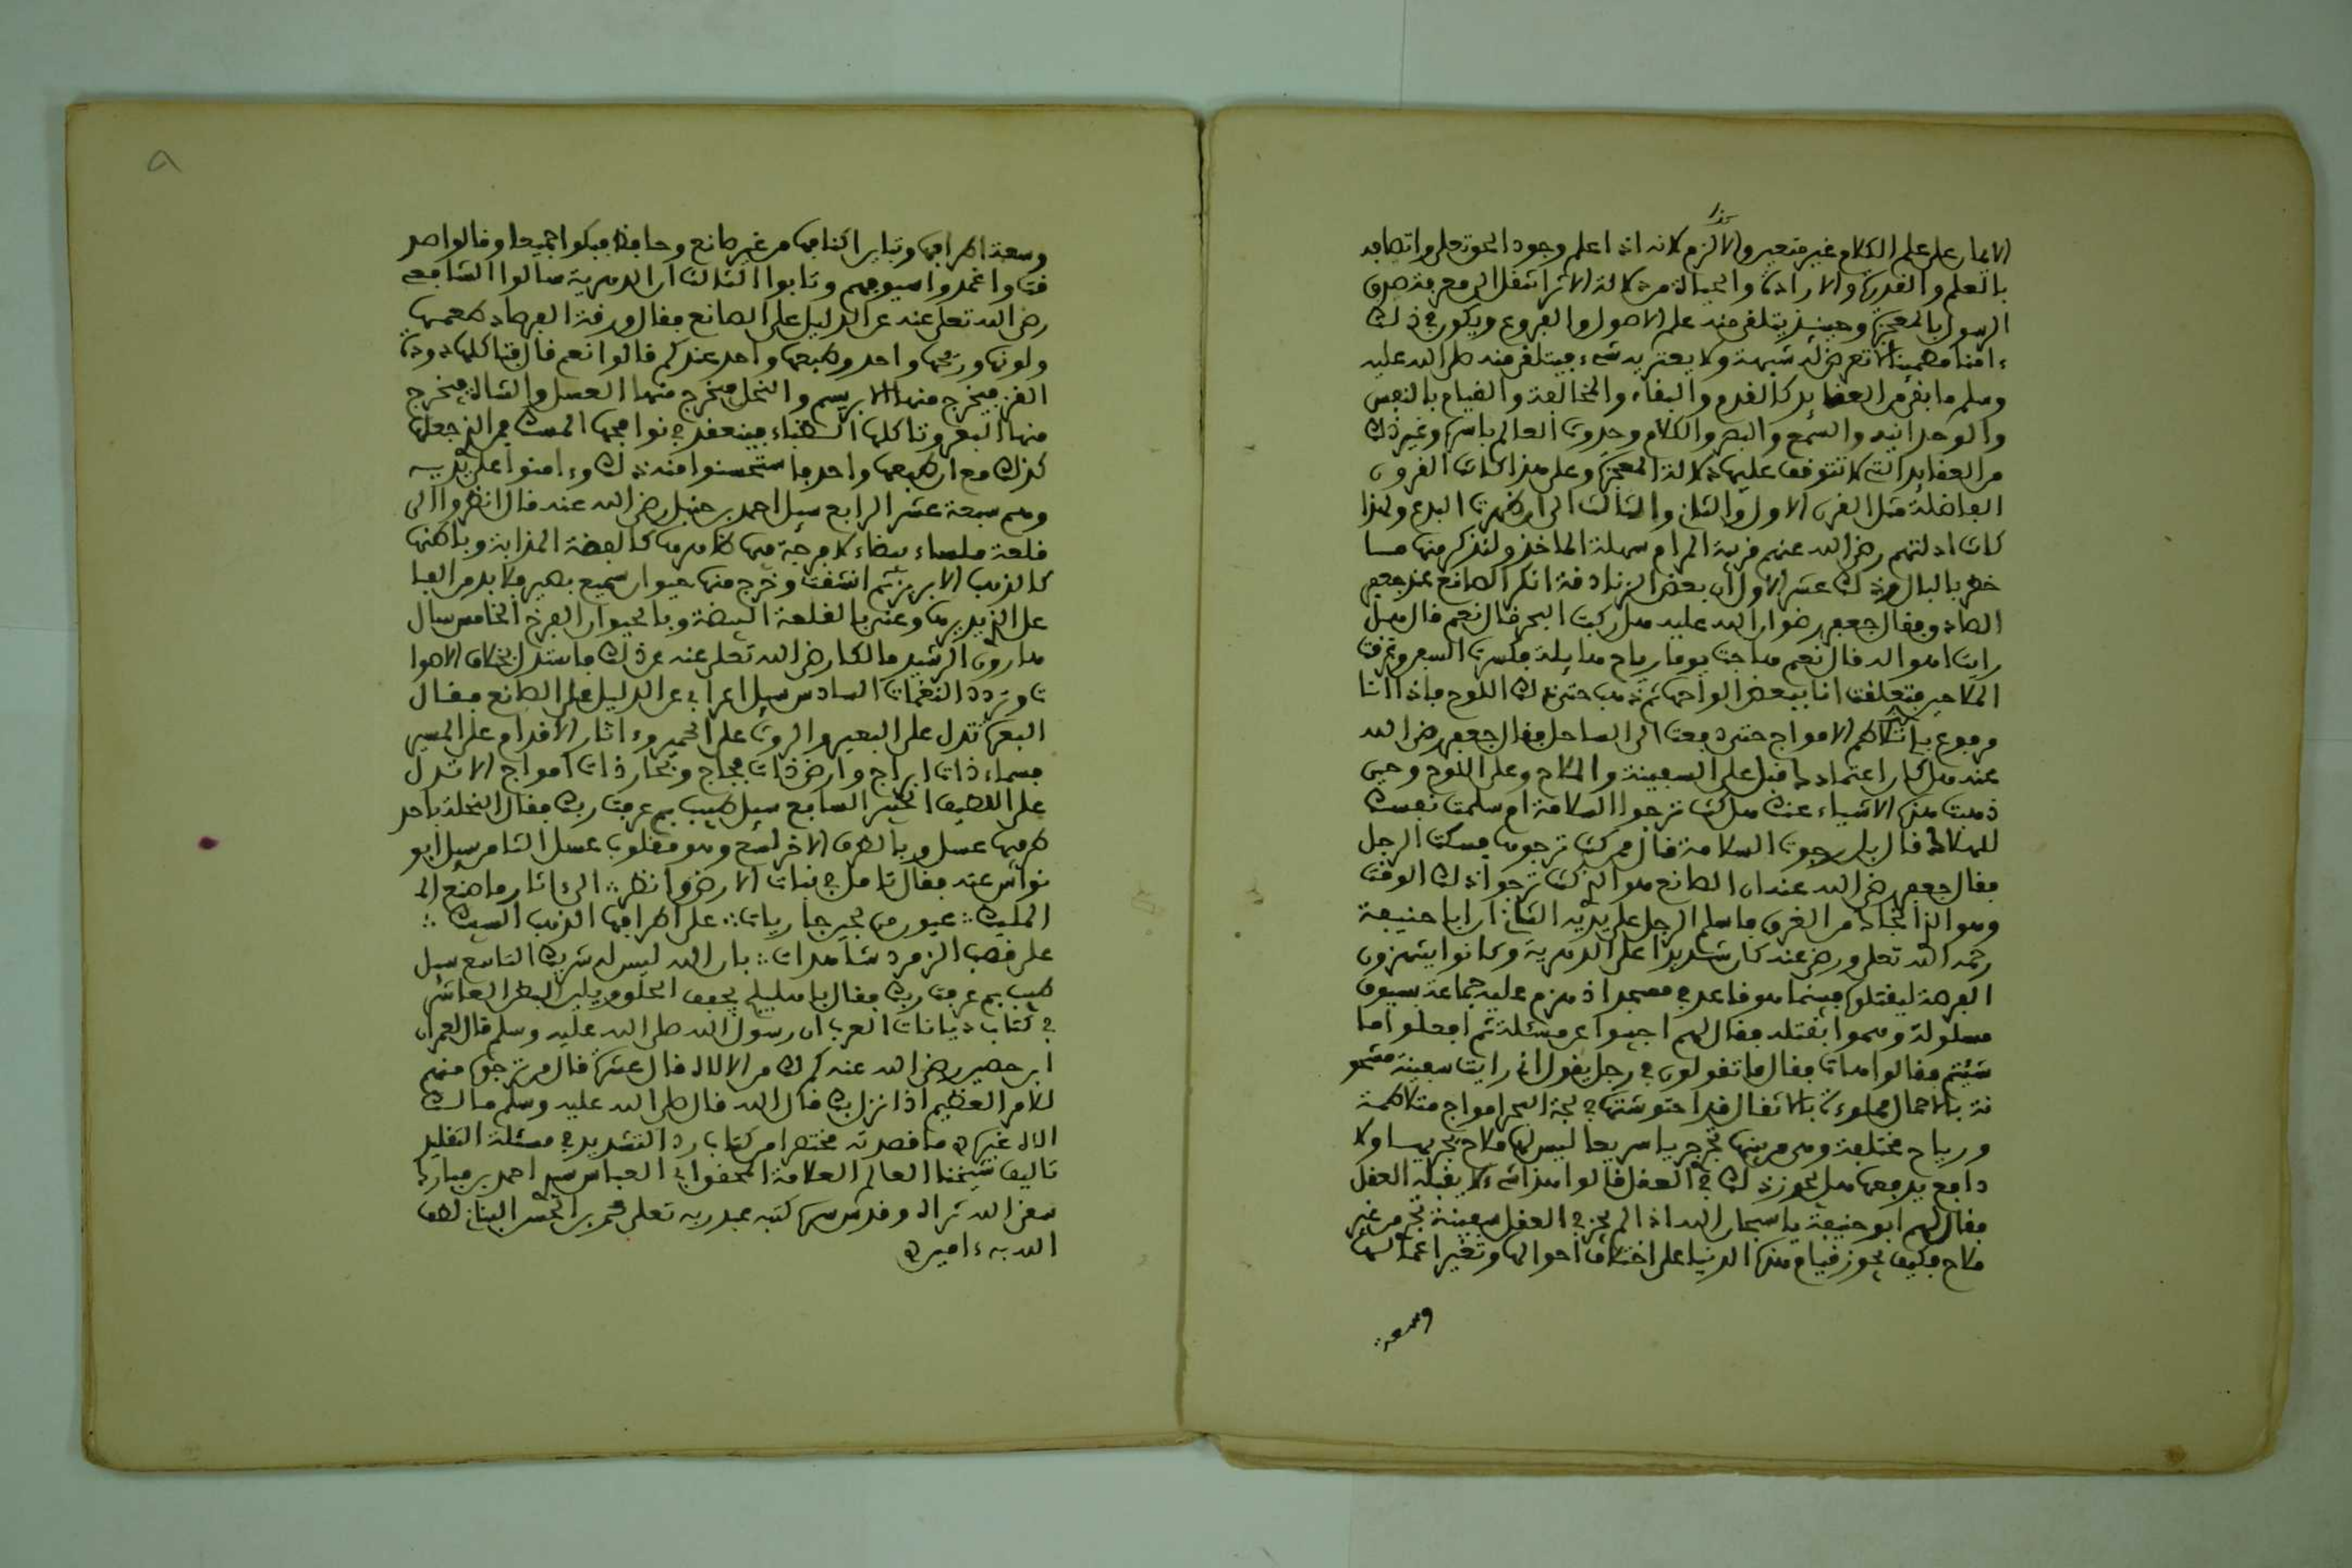 الايمان على علم الكلام غير متعين ولا لازم لانه اذا علم وجود الحق تعلى واتصافه
كذا
بالعلم والقدرة والارادة والحياة من دلالة الاثر انتقل الى معرفة صدق
الرسول بالمعجزة وحينئذ يتلقى منه علم الاصول والفروع ويكون في ذلك
ءامنا مطمئنا لا تعرض له شبهة ولا يعتريه شيء فيتلقى منه صلى الله عليه
وسلم ما بقي من العقايد كالقدم والبقاء والمخالفة والقيام بالنفس
والوحدانية والسمع والبصر والكلام وحدوث العالم باسره وغير ذلك
من العقايد التي لا تتوقف عليها دلالة المعجزة وعلى هذا كانت القرون
الفاضلة مثل القرن الاول والثاني والثالث الى ان ظهرت البدع ولهذا
كانت ادلتهم رضي الله عنهم قريبة المرام سهلة الماخذ ولنذكر منها مما
خطر بالبال من ذلك عشرة الاول ان بعض الزنادقة انكر الصانع عند جعفر
الصادق فقال جعفر رضوان الله عليه هل ركبت البحر قال نعم قال هل
رايت اهواله قال نعم هاجت يوما رياح هايلة فكسرت السفن وغرقت
الملاحين فتعلقت انا ببعض الواحها ثم ذهب عني ذلك اللوح فاذا انا
مدفوع بتلاطم الامواج حتى دفعت الى الساحل فقال جعفر رضي الله
عنه هل كان اعتمادك قبل على السفينة والملاح وعلى اللوح وحين
ذهبت هذه الاشياء عنك هل كنت ترجوا السلامة ام سلمت نفسك
للهلاك قال بل رجوت السلامة قال ممن كنت ترجوها فسكت الرجل
فقال جعفر رضي الله عنه ان الصانع هو الذي كنت ترجو ذلك الوقت
وهو الذي انجاك من الغرق فاسلم الرجل على يديه الثاني ان ابا حنيفة
رحمه الله تعلى ورضي عنه كان شديدا على الدهرية وكانوا ينتهزون
الفرصة ليقتلوه فبينما هو قاعد في مسجد اذ هجم عليه جماعة بسيوف
مسلولة وهموا بقتله فقال لهم اجيبوا عن مسئلة ثم افعلوا ما
شئتم فقالوا هات فقال ما تقولون في رجل يقول اني رايت سفينة مشحو
نة بالاحمال مملوءة بالاثقال قد احتوشتها في لجة البحر امواج متلاطمة
ورياح مختلفة وهي من بينها تجري جريا سريعا ليس لها ملاح يجريها ولا
دافع يدفعها هل يجوز ذلك في العقل قالوا هذا شيء لا يقبله العقل
فقال لهم ابو حنيفة يا سبحان الله اذا لم يجز في العقل سفينة تجري من غير
ملاح فكيف يجوز قيام هذه الدنيا على اختلاف احوالها وتغير اعمالها
وسعة
وسعة اطرافها وتباين اكنافها من غير صانع وحافظ فبكوا جميعا وقالوا صد
قت واغمدوا سيوفهم وتابوا الثالث ان الدهرية سالوا الشافعي
رضي الله تعلى عنه عن الدليل على الصانع فقال ورقة الفرصاد طعمها
ولونها وريحها واحد وطبعها واحد عندكم قالوا نعم قال فتاكلها دودة
القز فيخرج منها الابريسم والنحل فيخرج منها العسل والشاة فيخرج
منها البعر وتاكلها الظباء فينعقد في نوافجها المسك فمن الذي جعلها
كذلك مع ان طبعها واحد فاستحسنوا منه ذلك وءامنوا على يديه
وهم سبعة عشر الرابع سيل احمد بن حنبل رضي الله عنه قال انظروا الى
قلعة ملساء بيضاء لا فرجة فيها ظاهرها كالفضة المذابة وباطنها
كالذهب الابريز ثم انشقت وخرج منها حيوان سميع بصير فلا بد من الفا
عل الذي يدبرها وعنى بالقلعة البيضة وبالحيوان الفرخ الخامس سال
هارون الرشيد مالكا رضي الله تعلى عنه عن ذلك فاستدل باختلاف الاصوا
ت وتردد النغمات السادس سيل اعرابي عن الدليل على الصانع فقال
البعرة تدل على البعير والروث على الحمير وءاثار الاقدام على المسير
فسماء ذات ابراج وارض ذات فجاج وبحار ذات امواج الا تدل
على اللطيف الخبير السابع سيل طبيب بم عرفت ربك فقال النحلة باحد
طرفيها عسل وبالطرف الاخر لسع وهو مقلوب عسل الثامن سيل ابو
نواس عنه فقال تامل في نبات الارض وانظر ∴ الى ءاثار ما صنع ال
المليك ∴ عيون من لجين جاريات ∴ على اطرافها الذهب السبيك ∴
على قصب الزمرد شاهدات ∴ بان الله ليس له شريك التاسع سيل
طبيب بم عرفت ربك فقال باهليلج يجفف الحلق ويلين البطن العاشر
في كتاب ديانات العرب ان رسول الله صلى الله عليه وسلم قال لعمران
ابن حصين رضي الله عنه كم لك من الاه قال عشرة قال من ترجوه منهم
للامر العظيم اذا نزل بك قال الله قال صلى الله عليه وسلم مالك
الاه غيره ه ما قصدته مختصرا من كتاب رد التشديد في مسئلة التقليد
تاليف شيخنا العالم العلامة المحقق ابي العباس سيدي احمد بن مبارك
سقى الله ثراه وقدس سره كتبه عبد ربه تعلى محمد بن الحسن البناني لطف
الله به ءامين ه